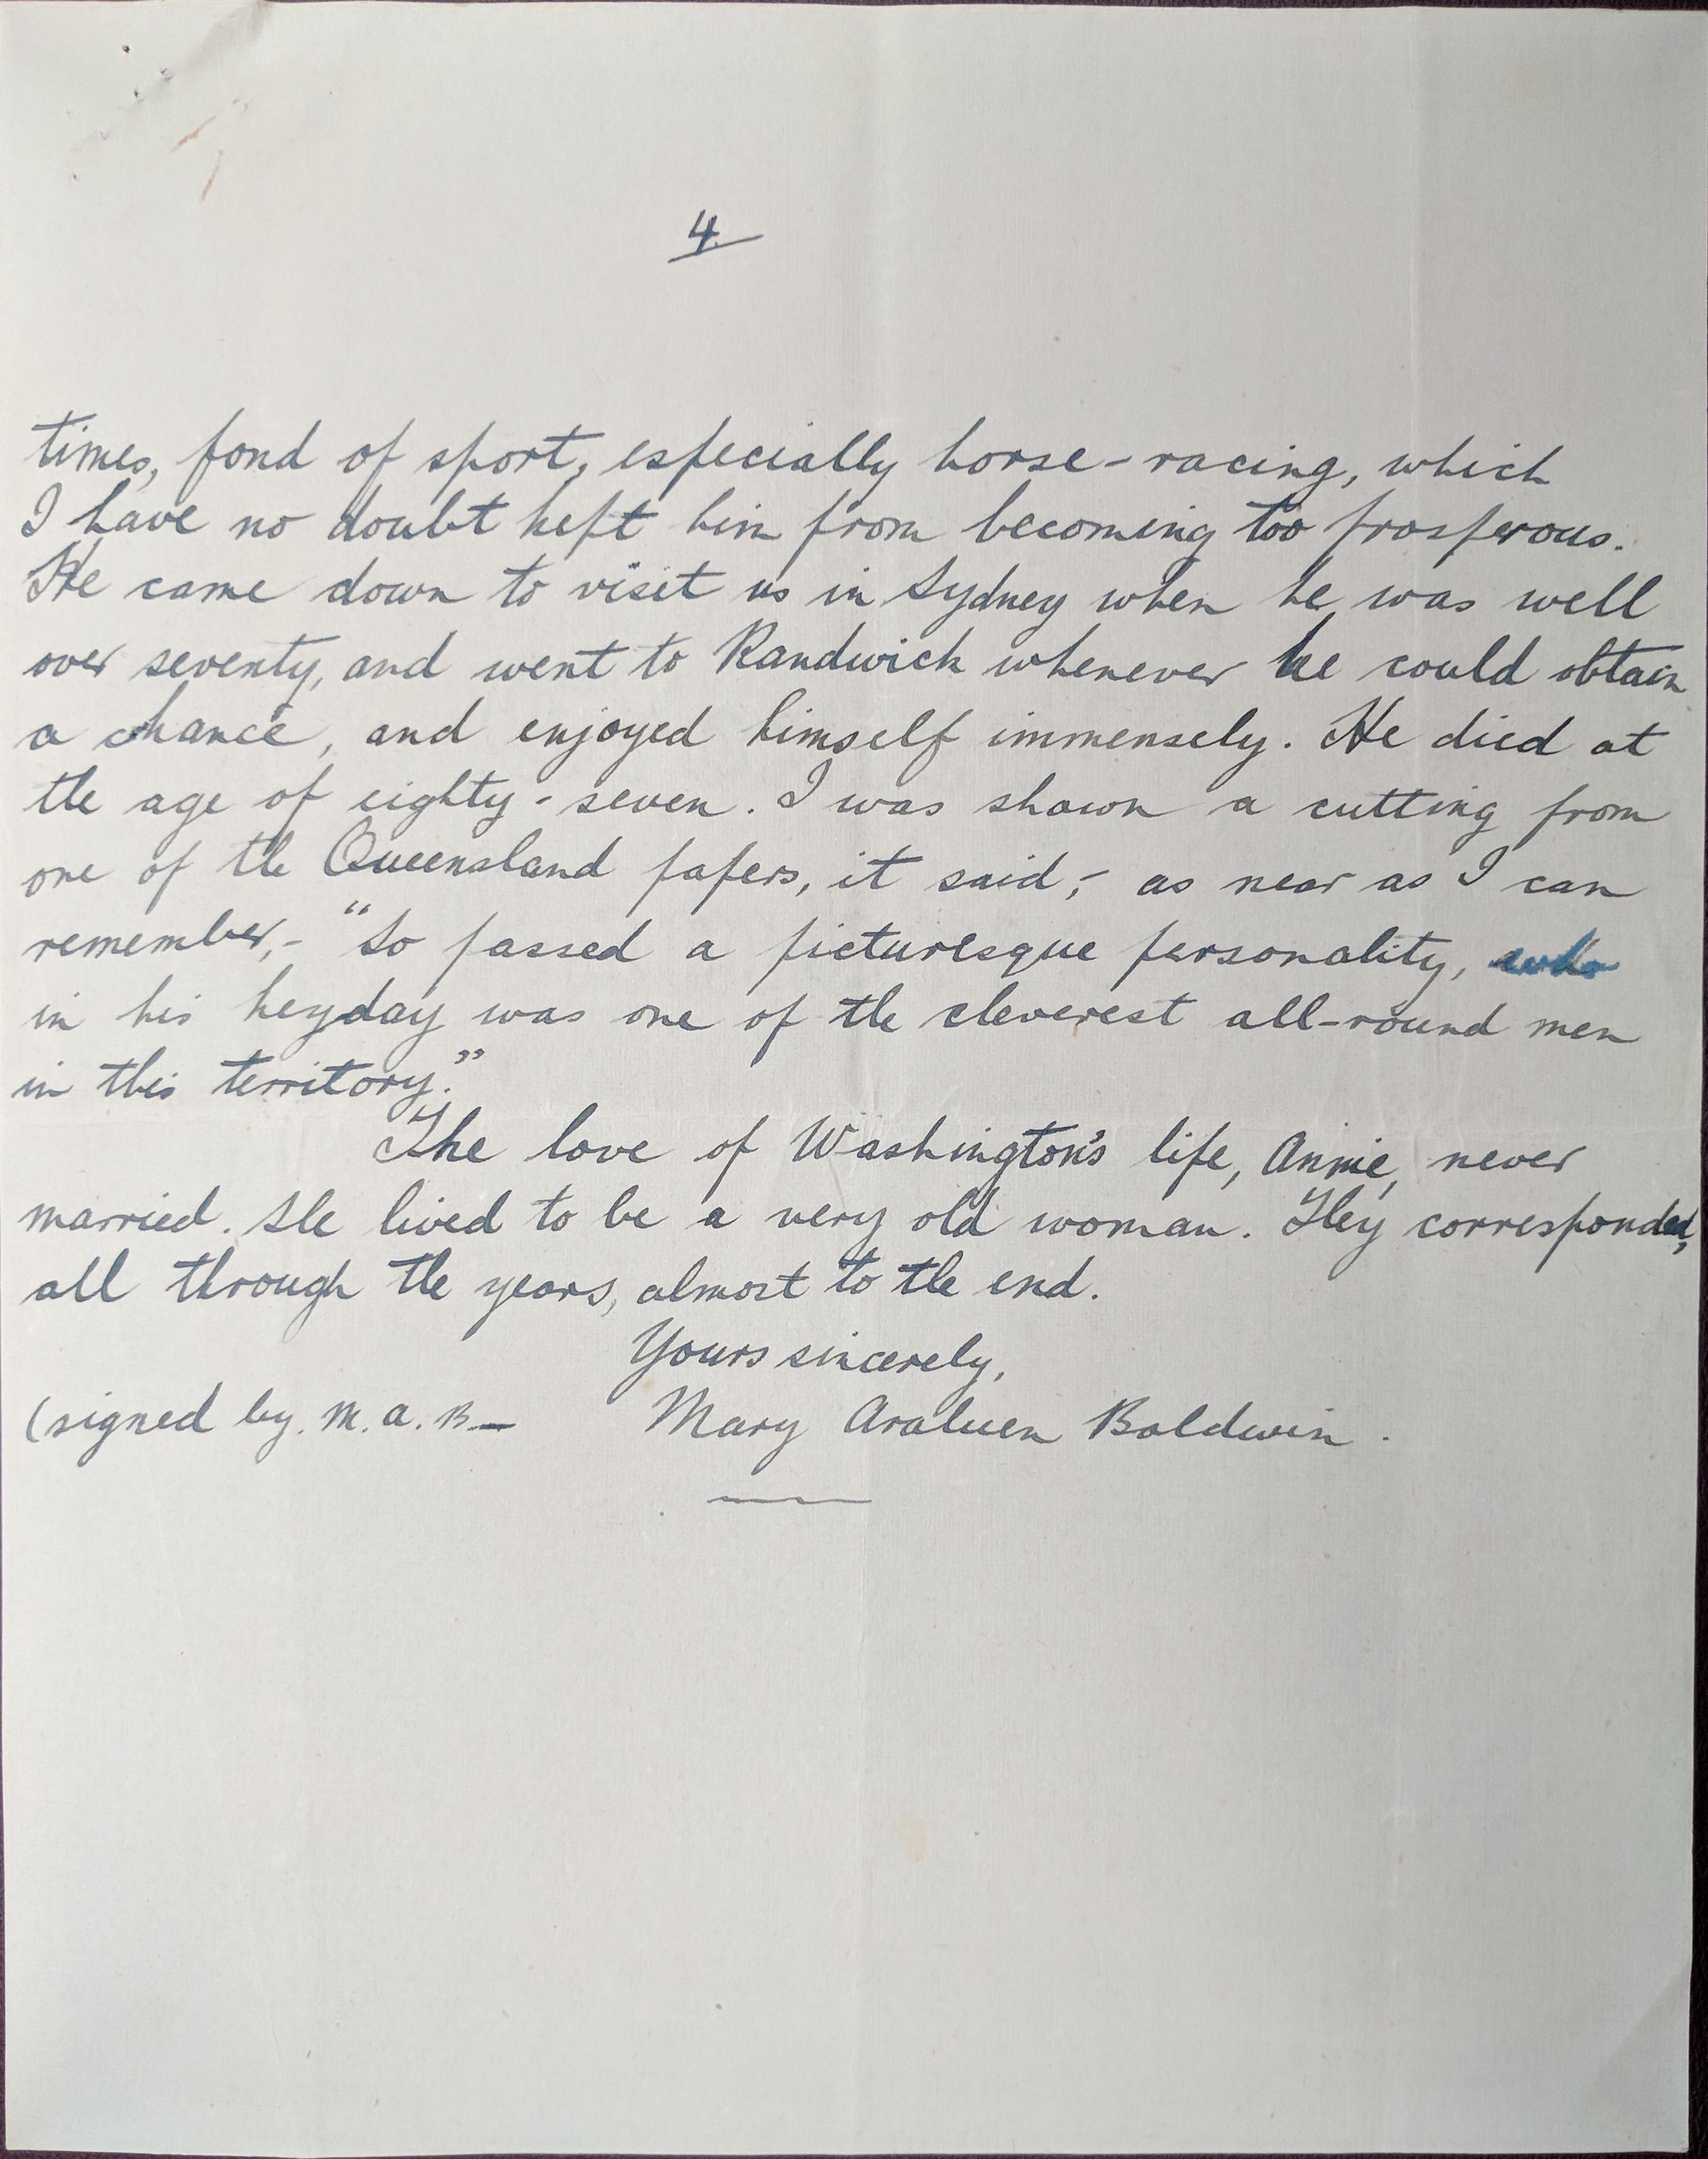 4
times, fond of sport, especially horse-racing, which
I have no doubt kept him from becoming too prosperous.
He came down to visit us in Sydney when he was well
over seventy, and went to Randwick whenever he could obtain
a chance, and enjoyed himself immensely. He died at
the age of eighty-seven. I was shown a cutting from
one of the Queensland papers, it said,- as near as I can
remember,- "So passed a picturesque personality, who
in his heyday was one of the cleverest all-round men
in this territory."
The love of Washington's life, Annie, never
married. She lived to be a very old woman. They corresponded,
all through the years, almost to the end.
Yours sincerely,
(signed by. M. A. B— Mary Araluen Baldwin.